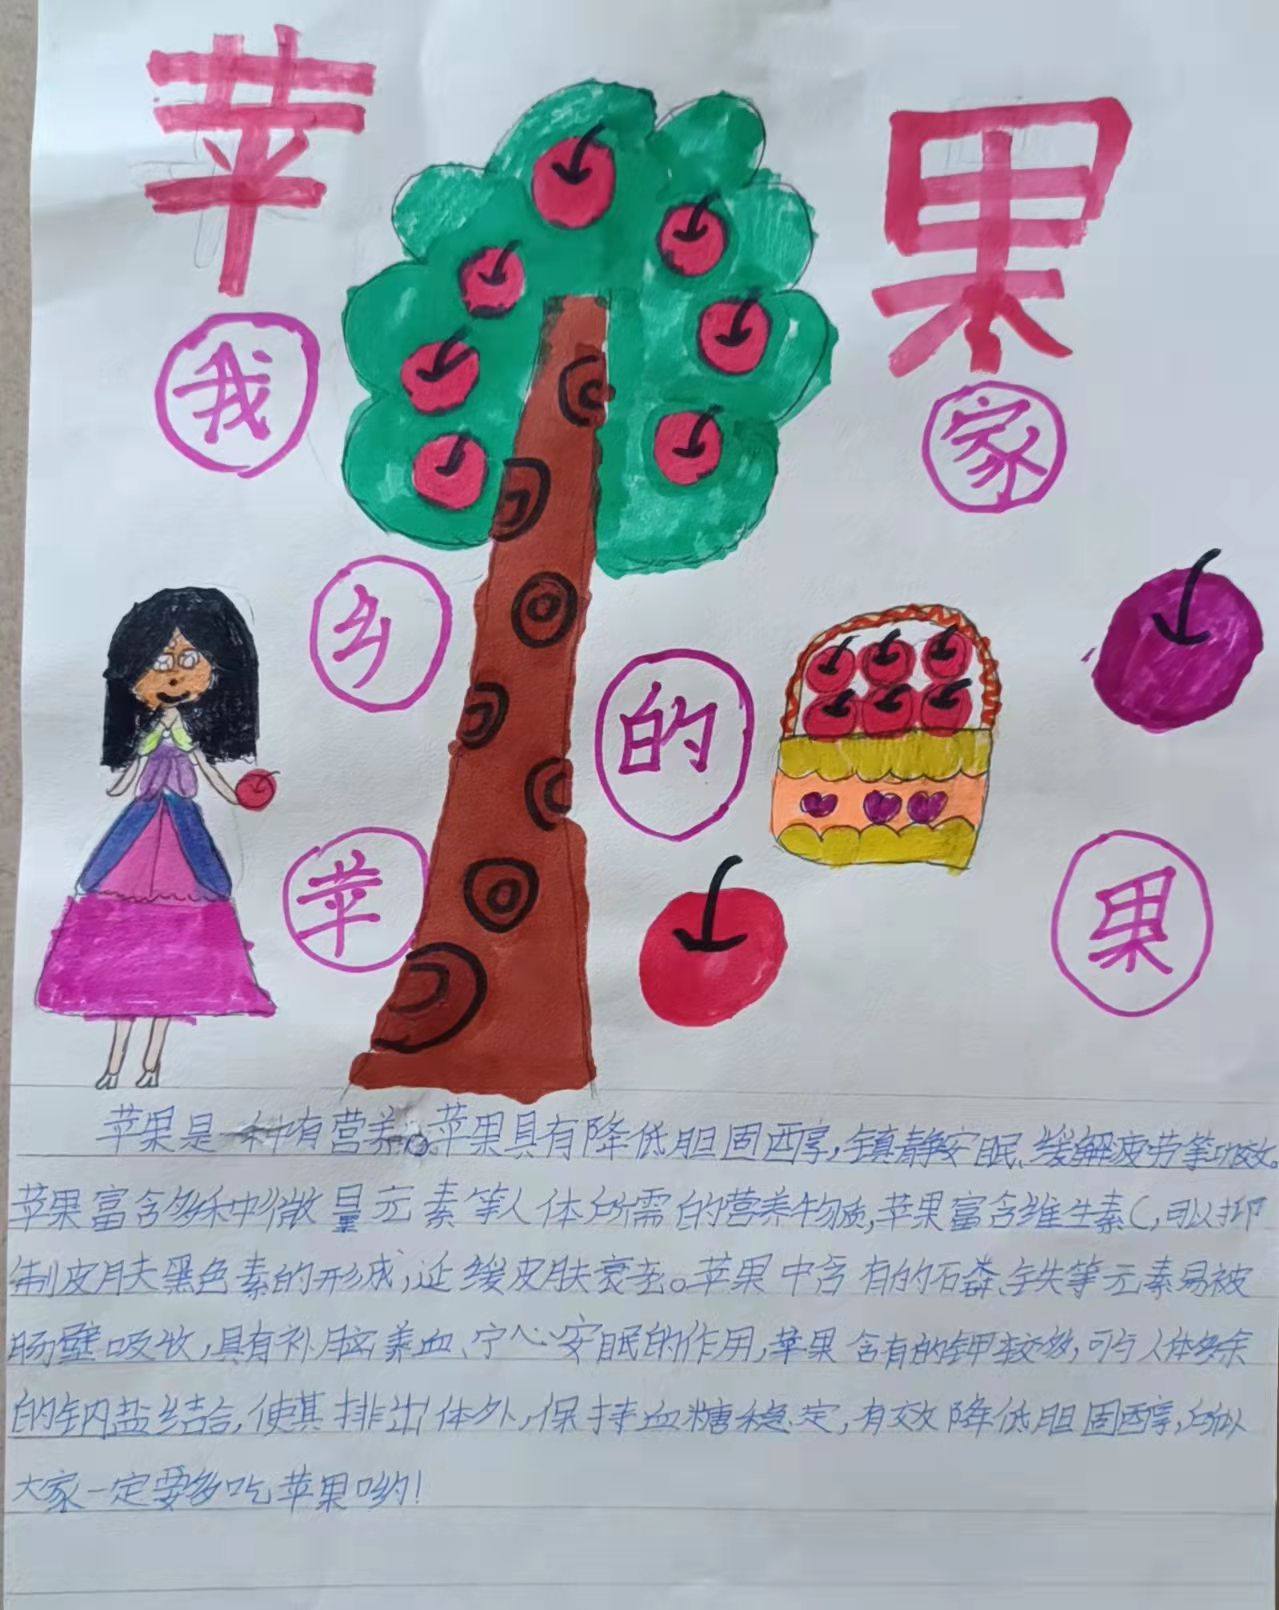 苹果
我家
乡的
苹果
苹果是一种有营养。苹果具有降低胆固醇,镇静安眠、缓解疲劳等功效。
苹果富含多种微量元素等人体所需的营养物质,苹果富含维生素C,可以抑
制皮肤黑色素的形成,延缓皮肤衰老。苹果中含有的石磷、铁等元素易被
肠壁吸收,具有补脑养血、宁心安眠的作用,苹果含有的钾较多,可与人体多余
的钠盐结合,使其排出体外,保持血糖稳定,有效降低胆固醇,所以
大家一定要多吃苹果哟!